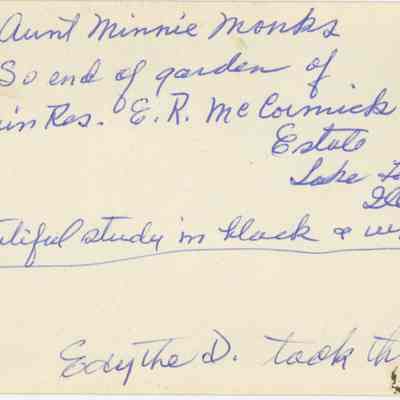 Aunt Minnie Monks
So end of garden of
in Res. E. R. McCormick
Estate
Lake
Ill
tiful study in black & w
Edythe D. took th